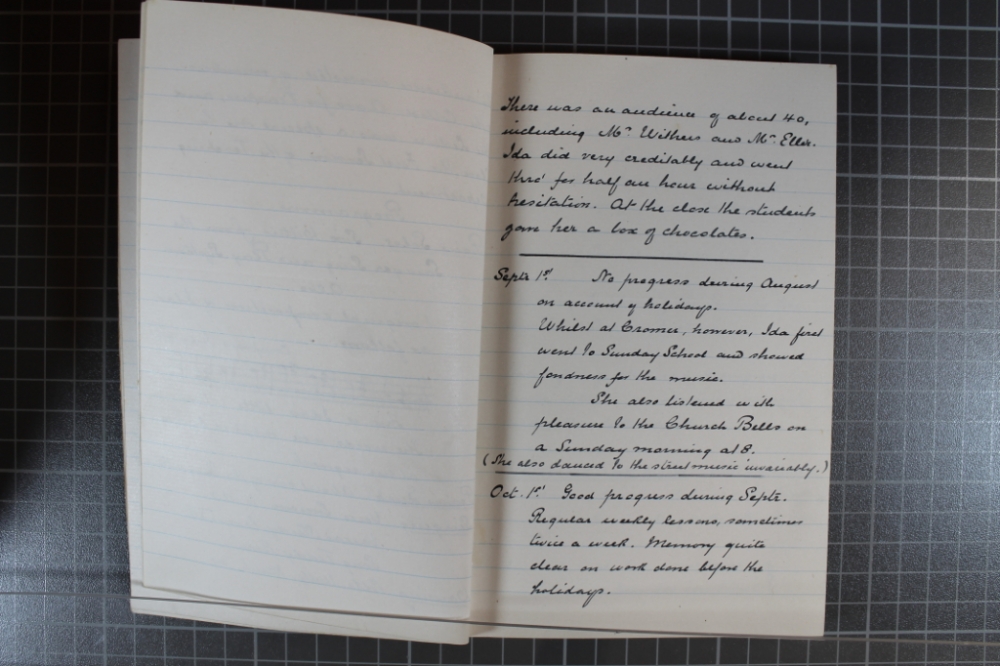 There was an audience of about 40,
including Mr. Withers and Mr. Ellis.
Ida did very creditably and went
thro' for half an hour without
hesitation. At the close the students
gave her a box of chocolates.
Septr. 1st. No progress during August
on account of holidays.
Whilst at Cromer, however, Ida first
went to Sunday School and showed
fondness for the music.
She also listened with
pleasure to the Church Bells on
a Sunday morning at 8.
(She also danced to the street music invariably.)
Oct. 1st. Good progress during Septr.
Regular weekly lessons, sometimes
twice a week. Memory quite
clear on work done before the
holidays.